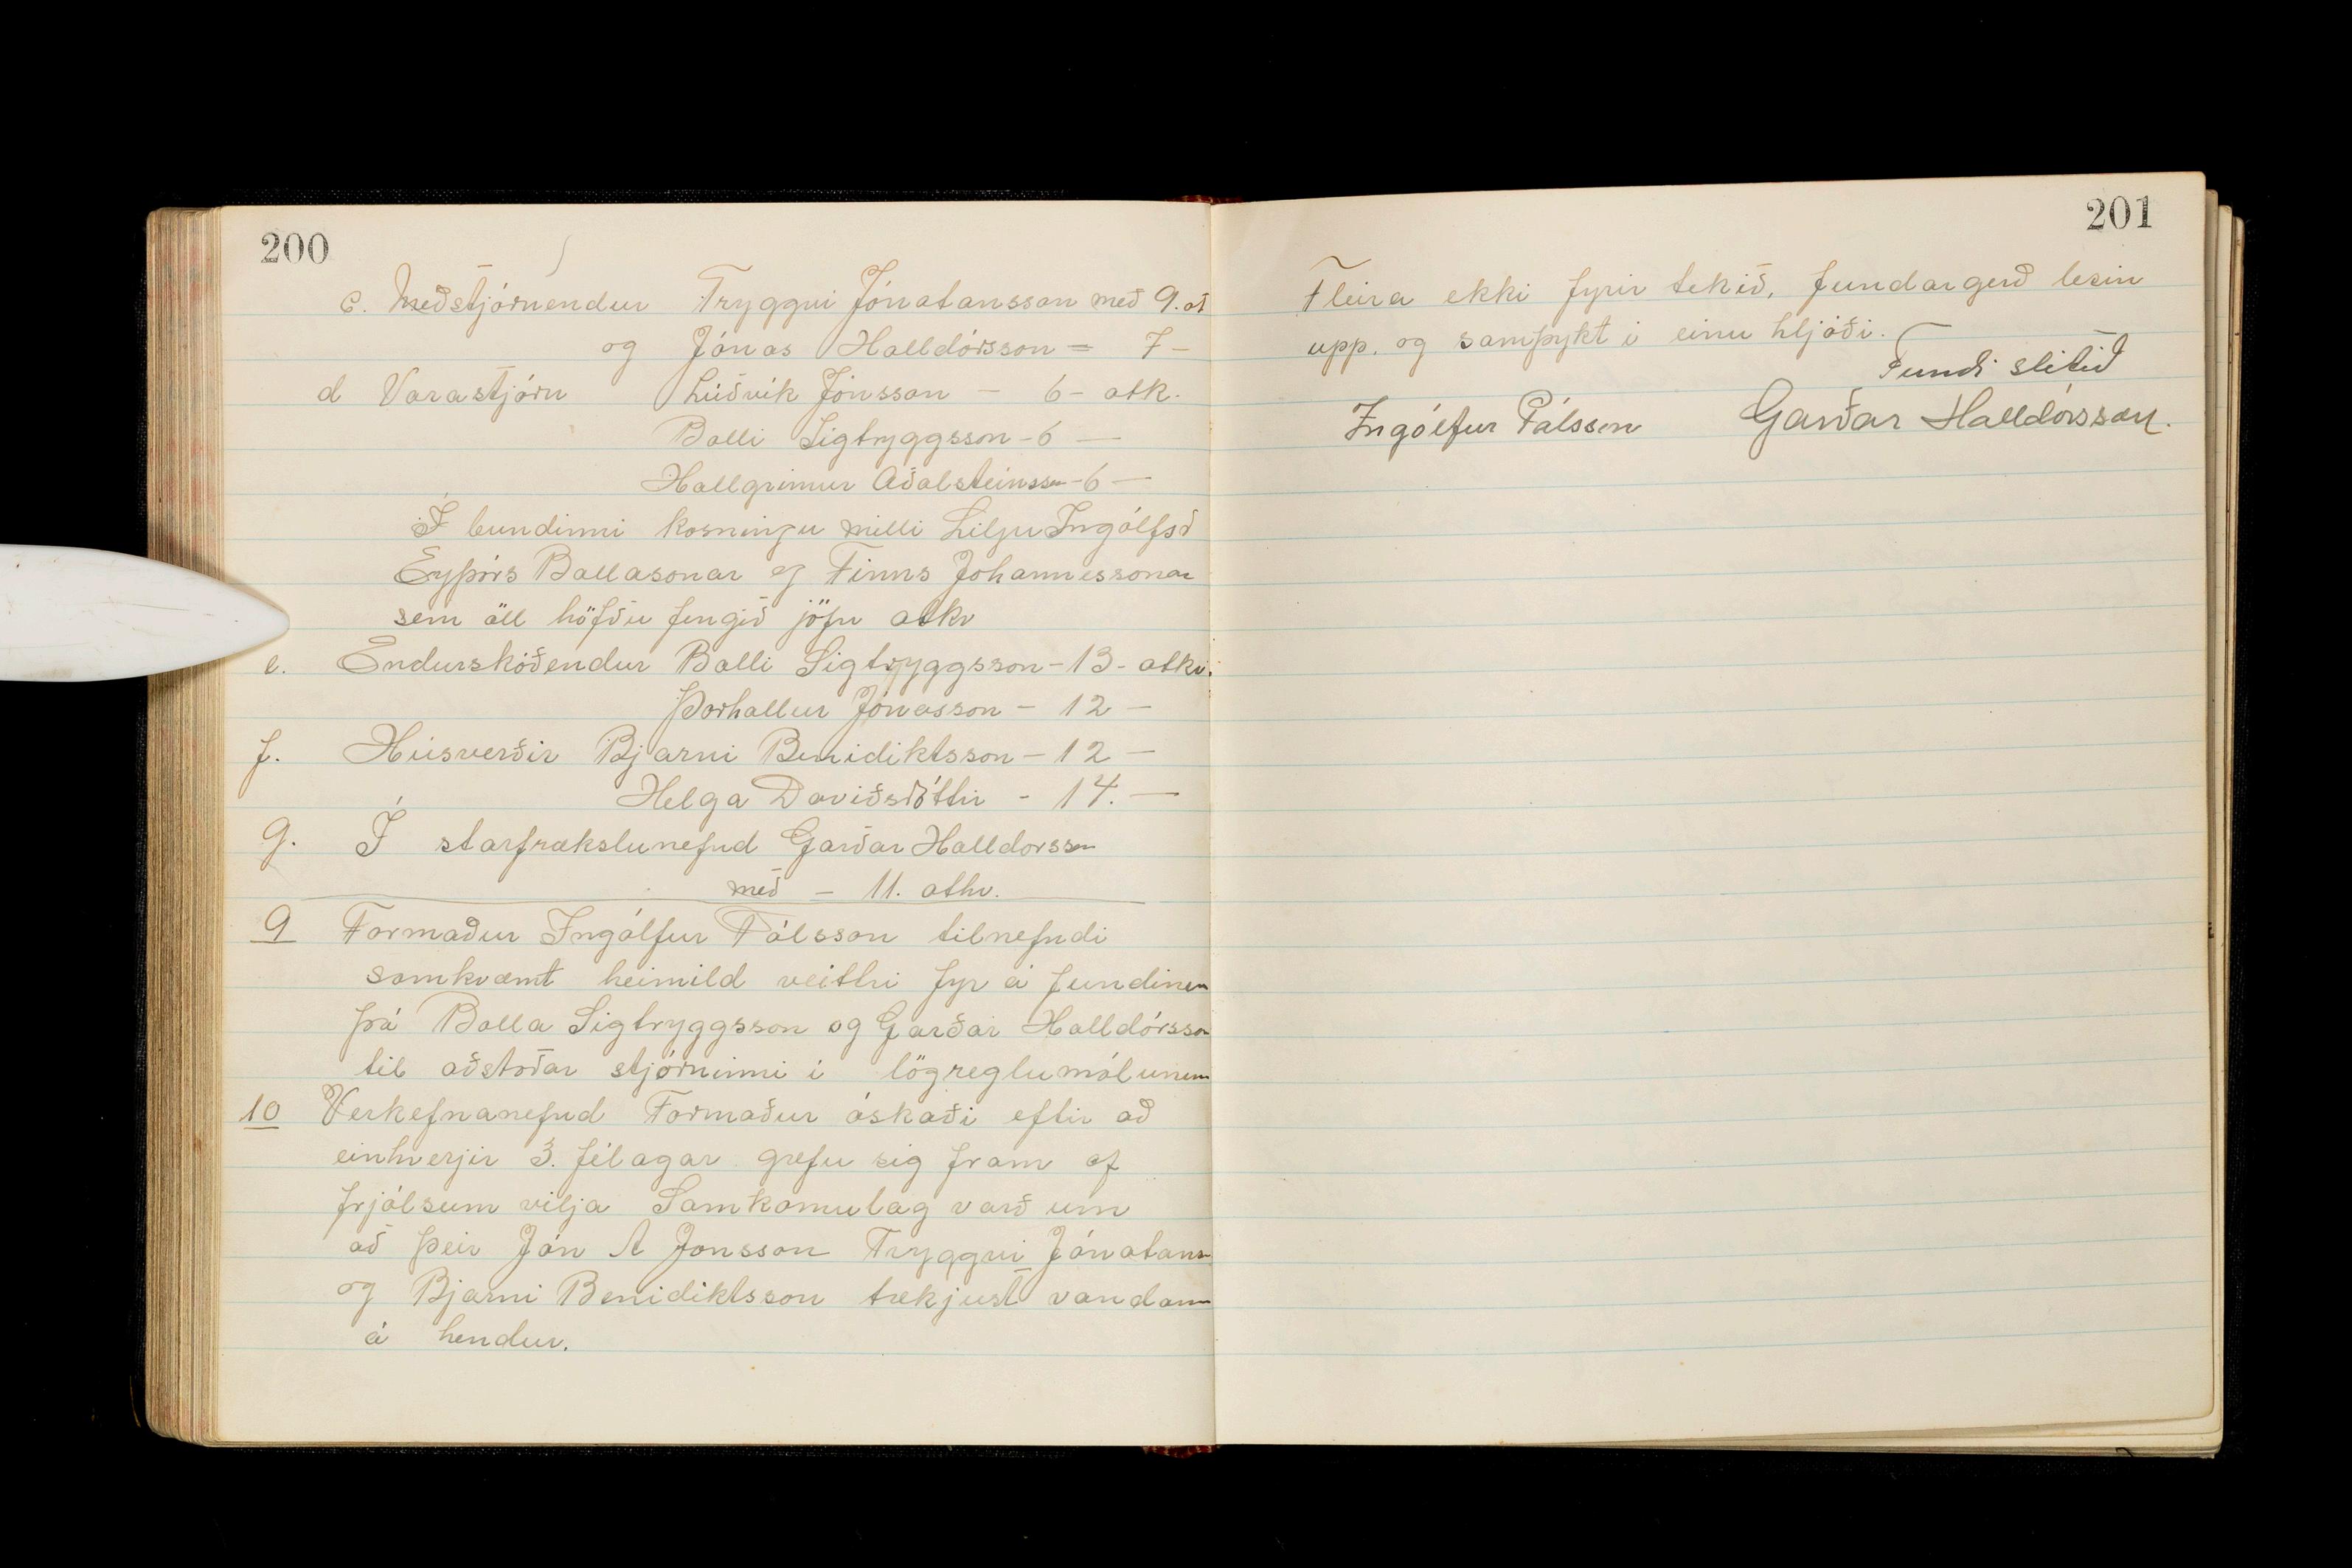 200
c. Meðstjórnendur Tryggvi Jónatansson með 9. at
og Jónas Halldórsson = 7 -
d Varastjórn Lúðvík Jónsson - 6 - atk.
Balli Sigtryggsson - 6 -
Hallgrimur Aðalsteinsson - 6 -
Í bundinni kosningu milli Lilju Ingólfsd
Eyþórs Ballasonar og Finns Johannessonar
sem öll höfðu fengið jöfn atkv
e. Endurskóðendur Balli Sigtryggsson - 13 - atkv.
Þorhallur Jónasson - 12 -
f. Húsverðir Bjarni Benidiktsson - 12 -
Helga Daviðsdóttir - 14. -
g. Í starfrækslunefnd Garðar Halldorsson
með - 11. atkv.
9 Formaður Ingólfur Pálsson tilnefndi
samkvæmt heimild veittri fyr á fundinum
þá Balla Sigtryggsson og Garðar Halldórsson
til aðstoðar stjórninni í lögreglumálunum
10 Verkefnanefnd Formaður óskaði eftir að
einhverjir 3. félagar gæfu sig fram af
frjálsum vilja Samkomulag varð um
að þeir Jón A Jonsson Tryggvi Jónatans
og Bjarni Benidiktsson tækjust vandann
á hendur.
201
Fleira ekki fyrir tekið, fundargerð lesin
upp. og samþykt i einu hljóði.
Fundi slitið
Ingólfur Pálsson Garðar Halldórsson.